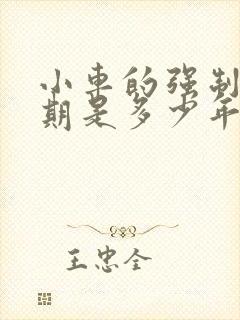 小车的强制
期是多少年
王忠全